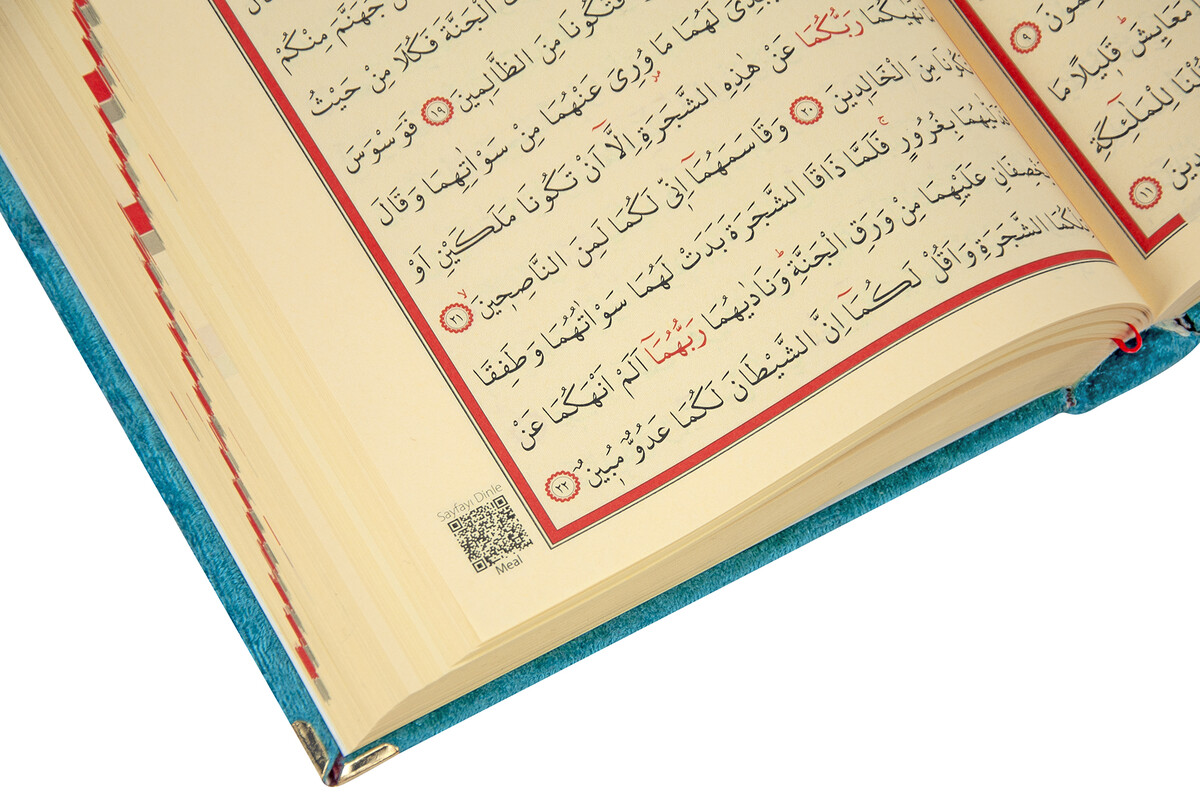 ٩
مَعَايِشَ قَل۪يلًا مَا
لِلْمَلٰٓئِكَةِ
١١
جَهَنَّمَ مِنْكُمْ
الْجَنَّةَ فَكُلَا مِنْ حَيْثُ
فَتَكُونَا مِنَ الظَّالِم۪ينَ ١٩ فَوَسْوَسَ
لَهُمَا مَا وُرِيَ عَنْهُمَا مِنْ سَوْاٰتِهِمَا وَقَالَ
رَبُّكُمَا عَنْ هٰذِهِ الشَّجَرَةِ اِلَّٓا اَنْ تَكُونَا مَلَكَيْنِ اَوْ
مِنَ الْخَالِد۪ينَ ٢٠ وَقَاسَمَهُمَٓا اِنّ۪ي لَكُمَا لَمِنَ النَّاصِح۪ينَ ٢١
بِغُرُورٍ فَلَمَّا ذَاقَا الشَّجَرَةَ بَدَتْ لَهُمَا سَوْاٰتُهُمَا وَطَفِقَا
عَلَيْهِمَا مِنْ وَرَقِ الْجَنَّةِ وَنَادٰيهُمَا رَبُّهُمَٓا اَلَمْ اَنْهَكُمَا عَنْ
الشَّجَرَةِ وَاَقُلْ لَكُمَٓا اِنَّ الشَّيْطَانَ لَكُمَا عَدُوٌّ مُب۪ينٌ ٢٢
Sayfayı Dinle
Meal